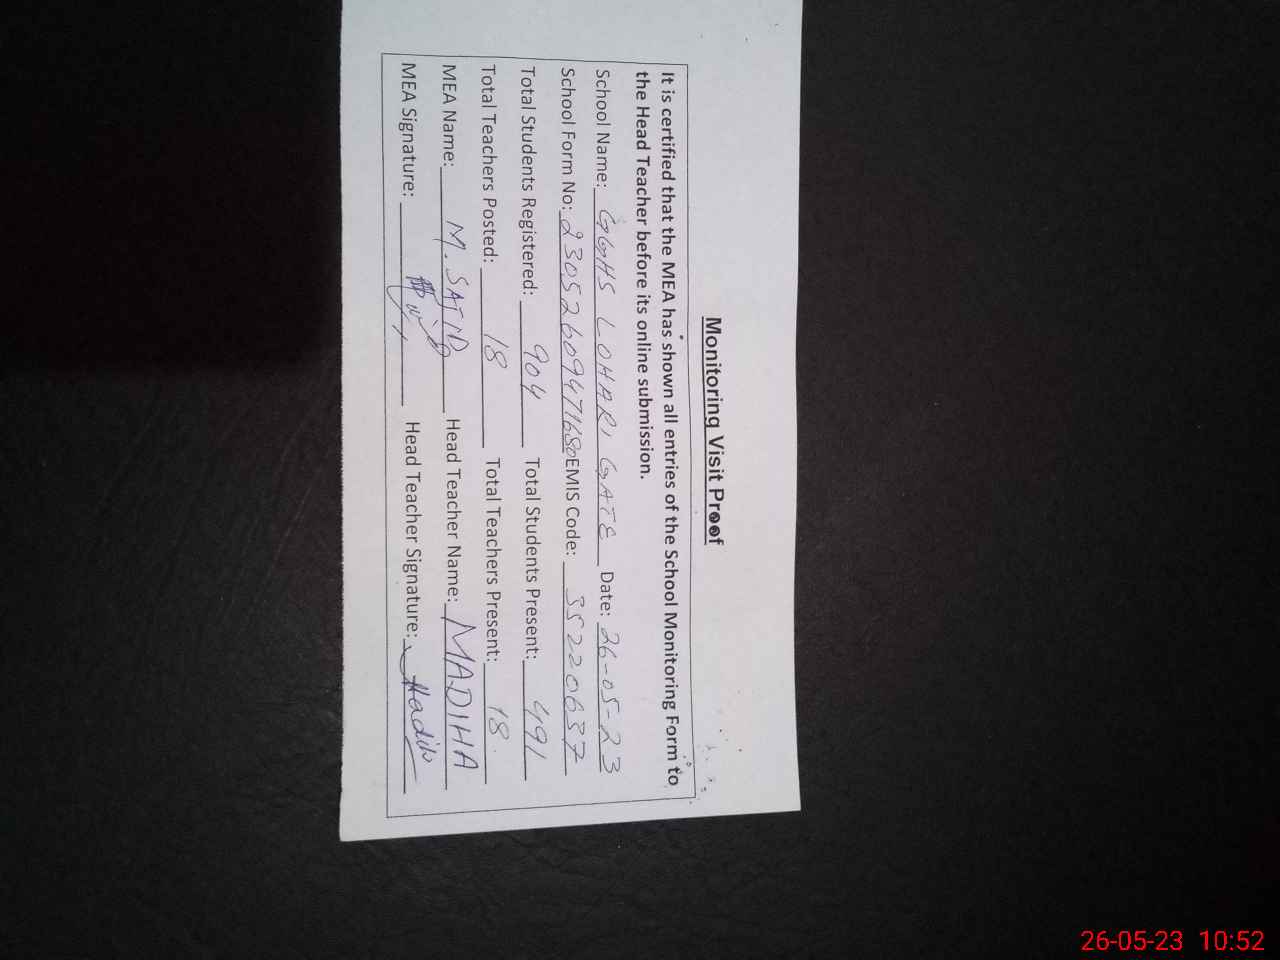 Monitoring Visit Proof
It is certified that the MEA has shown all entries of the School Monitoring Form to
the Head Teacher before its online submission.
School Name: GGHS LOHARI GATE Date: 26-05-23
School Form No: 23052609471680 EMIS Code: 35220637
Total Students Registered: 904 Total Students Present: 491
Total Teachers Posted: 18 Total Teachers Present: 18
MEA Name: M. SAJID Head Teacher Name: MADIHA
MEA Signature: Head Teacher Signature: Madiha
26-05-23 10:52